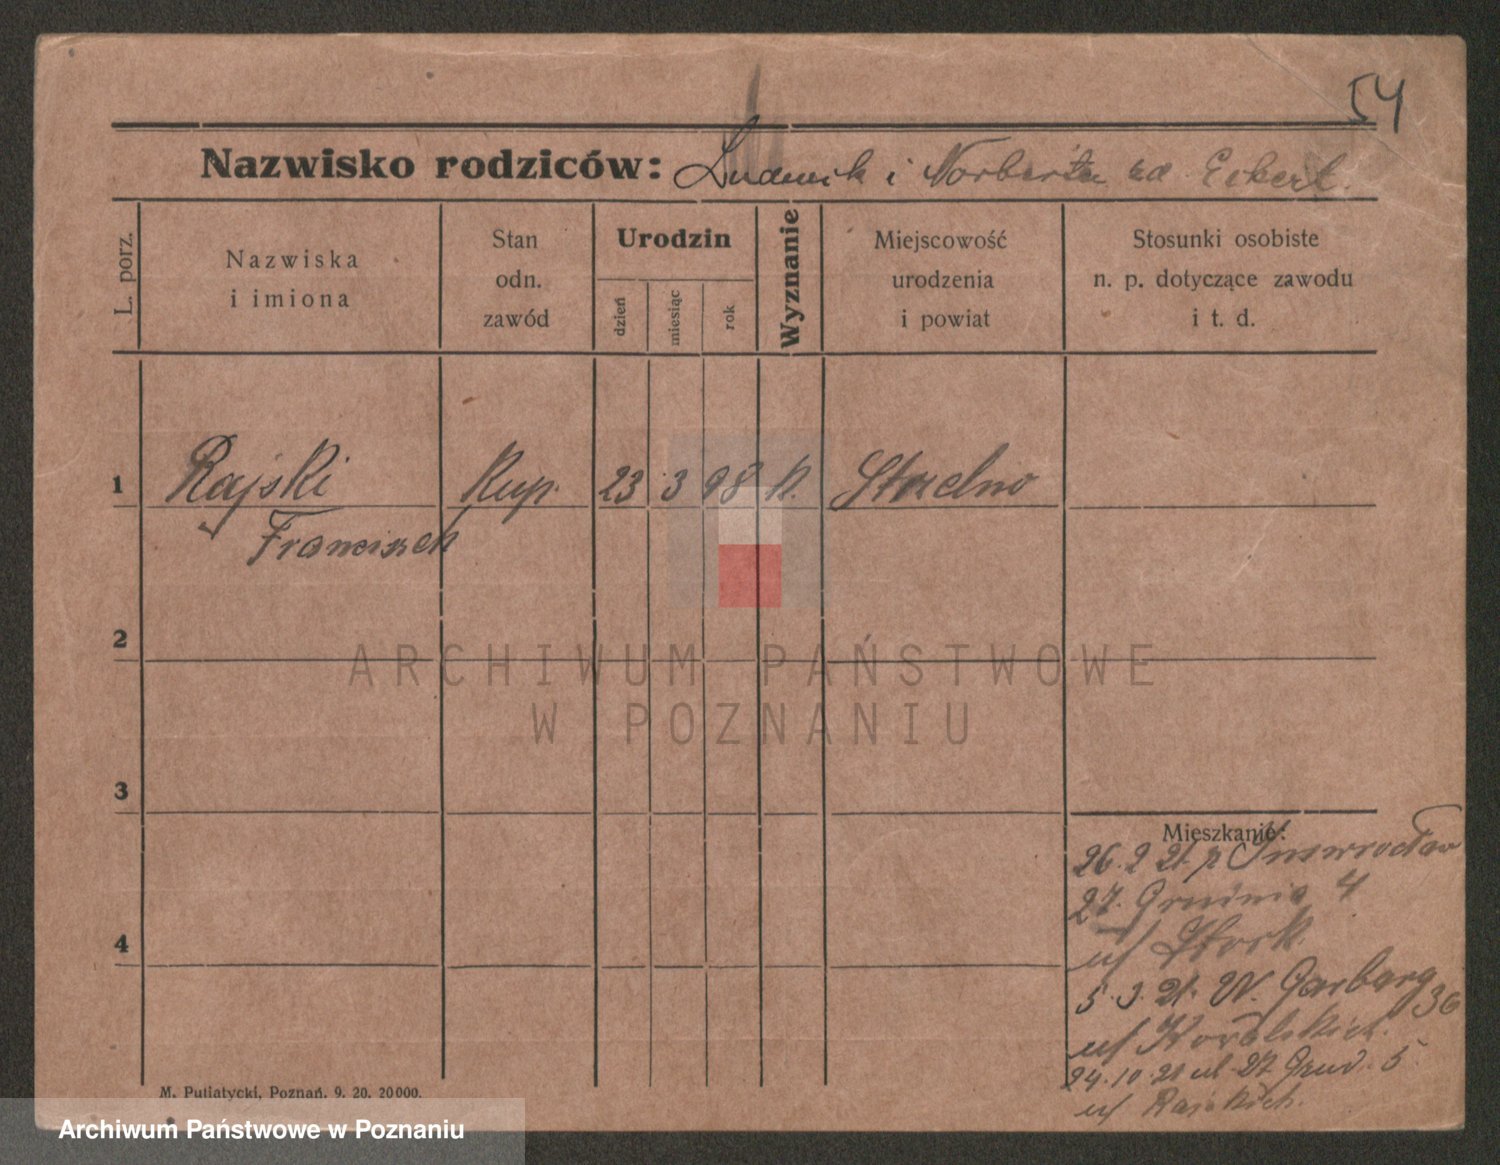 54
Nazwisko rodziców: Ludwik i Norberta zd Eckert.
L. porz.
Nazwiska
i imiona
Stan
odn.
zawód
Urodzin
dzień
miesiąc
rok
Wyznanie
Miejscowość
urodzenia
i powiat
Stosunki osobiste
n. p. dotyczące zawodu
i t. d.
1 Rajski Kup. 23 3 98 k. Strzelno
Franciszek
2
3
4
Mieszkanie:
26.2 21. z Inowrocław
27. Grudnia 4
u/ Stork.
5.3.21. W. Garbary 36
u/
24.10.21 ul. 27 Grud. 5
u/ Rajskich.
M. Putiatycki, Poznań. 9. 20. 20000.
ARCHIWUM PAŃSTWOWE
W POZNANIU
Archiwum Państwowe w Poznaniu